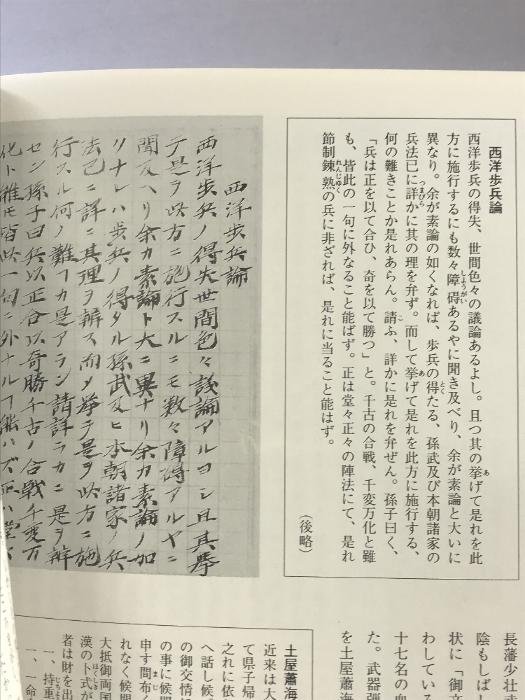 西洋歩兵論
西洋歩兵の得失、世間色々の議論あるよし。且つ其の挙げて是れを此
方に施行するにも数々障碍あるやに聞き及べり、余が素論と大いに
異なり。余が素論の如くなれば、歩兵の得たる、孫武及び本朝諸家の
兵法已に詳かに其の理を弁ず。而して挙げて是れを此方に施行する、
何の難きことか是れあらん。請ふ、詳かに是れを弁ぜん。孫子曰く、
「兵は正を以て合ひ、奇を以て勝つ」と。千古の合戦、千変万化と雖
も、皆此の一句に外なること能はず。正は堂々正々の陣法にて、是れ
節制錬熟の兵に非ざれば、是れに当ること能はず。
(後略)
西洋歩兵論
西洋歩兵ノ得失世間色々議論アルヨシ且其挙
テ是ヲ此方ニ施行スルニモ数々障碍アルヤニ
聞及ヘリ余カ素論ト大ニ異ナリ余カ素論ノ如
クナレハ歩兵ノ得タル孫武及ヒ本朝諸家ノ兵
法已ニ詳ニ其理ヲ辨ス而メ挙テ是ヲ此方ニ施
行スル何ノ難フカ是アラン請詳ラカニ是ヲ辨
セン孫子曰兵以正合以奇勝千古ノ合戦千変万
化ト雖モ皆此一句ニ外ナルヿ能ハズ正ハ堂
長藩少壮士
陰もしばし
状に「御文
わしている
十七名の血
た。武器弾
を土屋蕭海
土屋蕭海
近来は大
て県子帰
之れに依
へ話し候
の御交情
の事に候間
申す間布く
れなく候間
大抵御両国
漢の卜式が
者は財を出
一、持重
一、一命